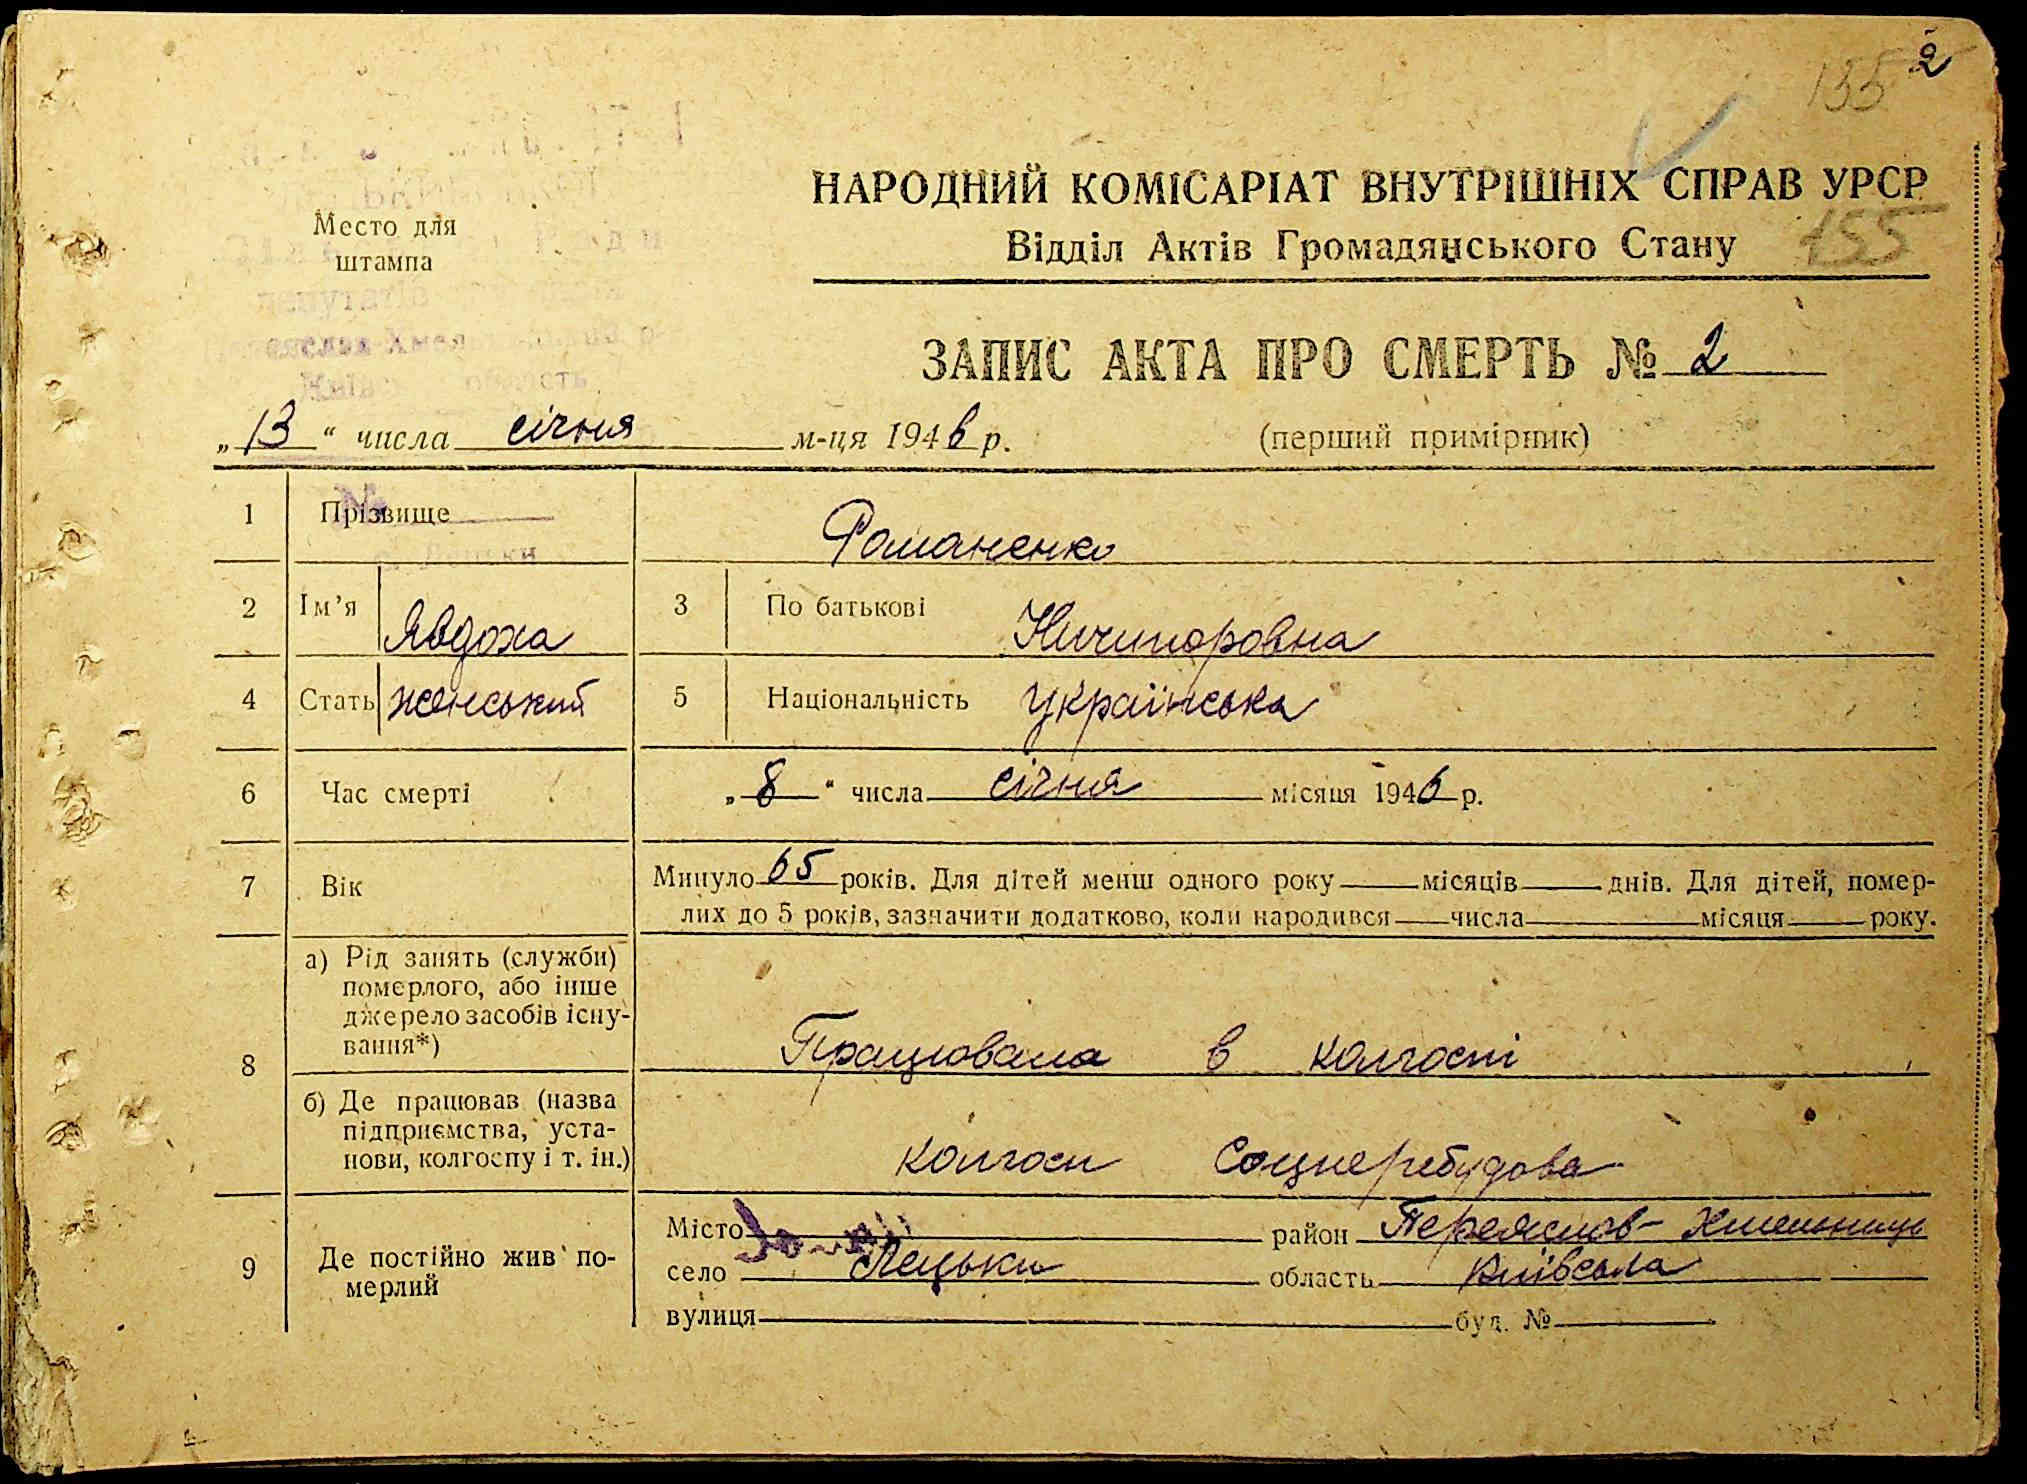 2
135
НАРОДНИЙ КОМІСАРІАТ ВНУТРІШНІХ СПРАВ УРСР
Відділ Актів Громадянського Стану
155
Место для
штампа
ЗАПИС АКТА ПРО СМЕРТЬ № 2
„13“ числа січня м-ця 1946 р.
(перший примірник)
1 Прізвище Романенко
2 Ім’я Явдоха 3 По батькові Ничипоровна
4 Стать женський 5 Національність українська
6 Час смерті „8“ числа січня місяця 1946 р.
7 Вік Минуло 65 років. Для дітей менш одного року місяців днів. Для дітей, помер-
лих до 5 років, зазначити додатково, коли народився числа місяця року.
8 а) Рід занять (служби)
померлого, або інше
джерело засобів існу-
вання*)
Працювала в колгоспі
б) Де працював (назва
підприємства, уста-
нови, колгоспу і т. ін.)
колгосп Соцперебудова
9 Де постійно жив по-
мерлий
Місто район Переяслав-Хмельниць
село Лецьки область Київська
вулиця буд. №